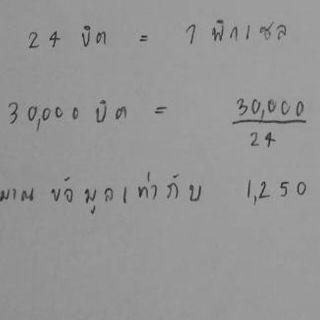 24 บิต = 1 พิกเซล
30,000 บิต = 30,000
24
มาณ ข้อมูลเท่ากับ 1,250